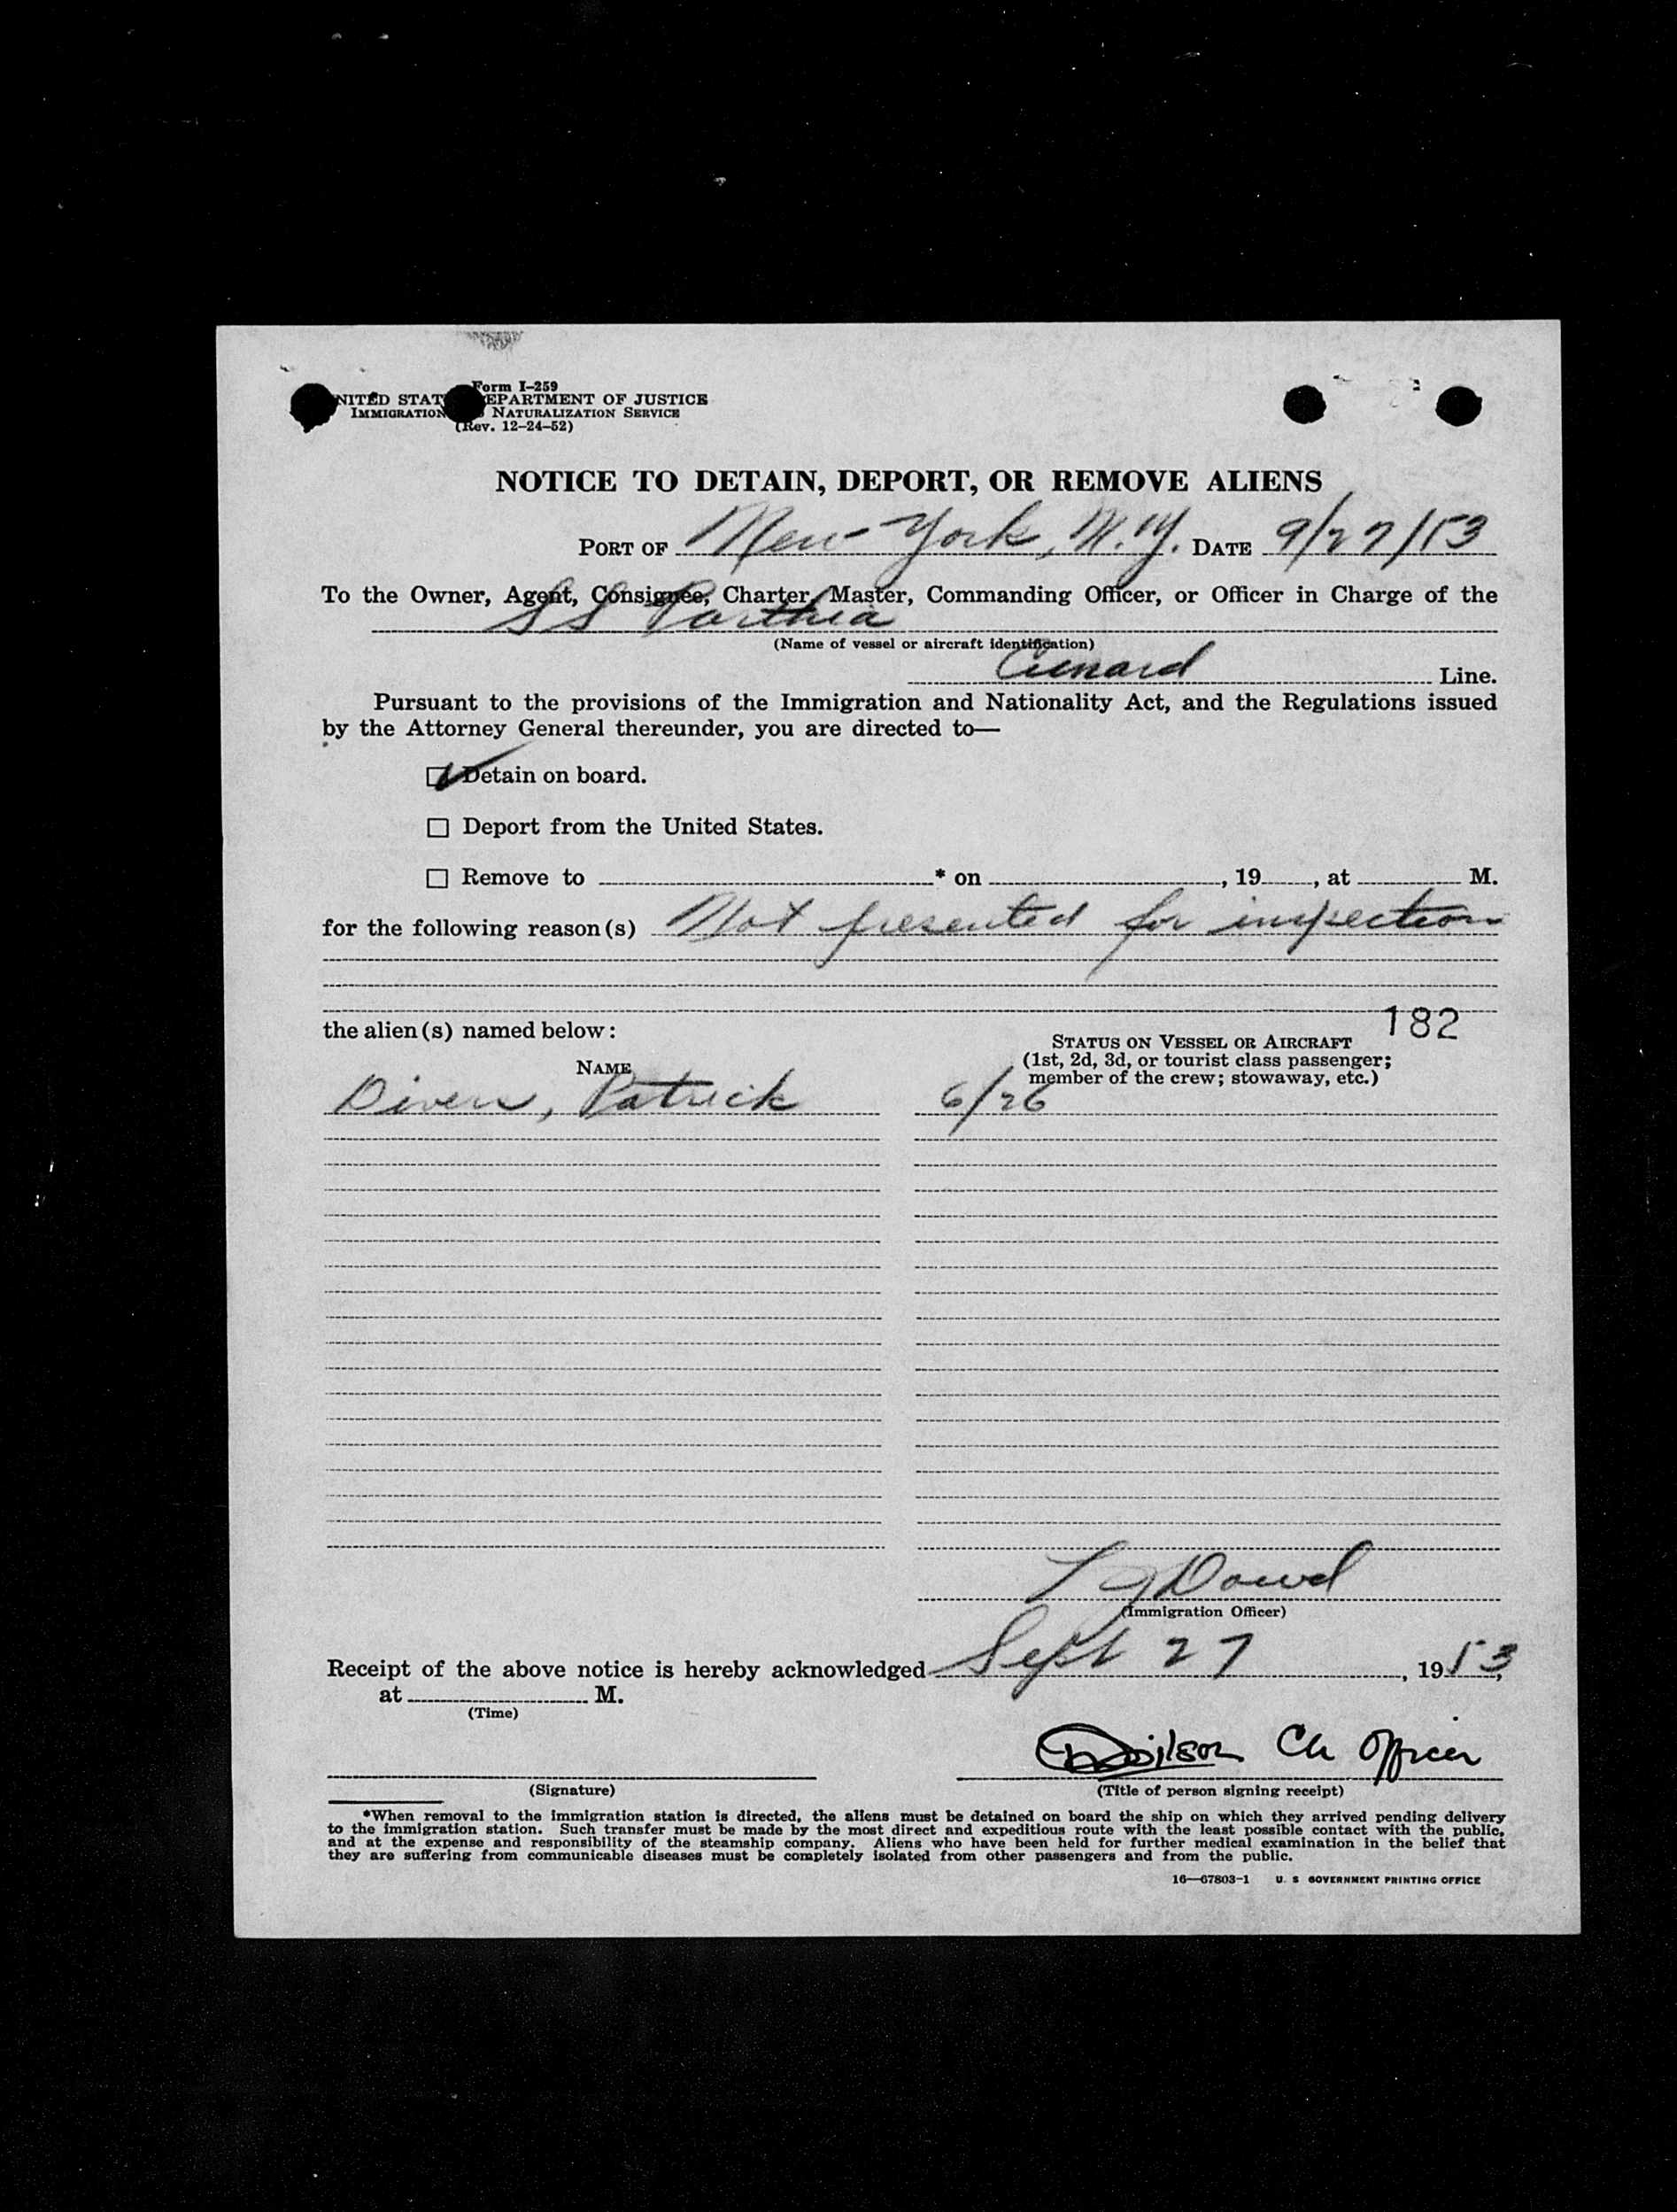 Form I-259
NITED STAT EPARTMENT OF JUSTICE
IMMIGRATION NATURALIZATION SERVICE
(Rev. 12-24-52)
NOTICE TO DETAIN, DEPORT, OR REMOVE ALIENS
PORT OF New York, N.Y. DATE 9/27/53
To the Owner, Agent, Consignee, Charter, Master, Commanding Officer, or Officer in Charge of the
SS Parthia
(Name of vessel or aircraft identification)
Cunard Line.
Pursuant to the provisions of the Immigration and Nationality Act, and the Regulations issued
by the Attorney General thereunder, you are directed to—
☑ Detain on board.
☐ Deport from the United States.
☐ Remove to * on , 19 , at M.
for the following reason(s) Not presented for inspection
182
the alien(s) named below:
STATUS ON VESSEL OR AIRCRAFT
(1st, 2d, 3d, or tourist class passenger;
member of the crew; stowaway, etc.)
NAME
Divers, Patrick 6/26
L J Dowd
(Immigration Officer)
Receipt of the above notice is hereby acknowledged Sept 27, 1953,
at M.
(Time)
Wilson Ch Officer
(Signature) (Title of person signing receipt)
*When removal to the immigration station is directed, the aliens must be detained on board the ship on which they arrived pending delivery
to the immigration station. Such transfer must be made by the most direct and expeditious route with the least possible contact with the public,
and at the expense and responsibility of the steamship company. Aliens who have been held for further medical examination in the belief that
they are suffering from communicable diseases must be completely isolated from other passengers and from the public.
16—67803-1 U. S GOVERNMENT PRINTING OFFICE